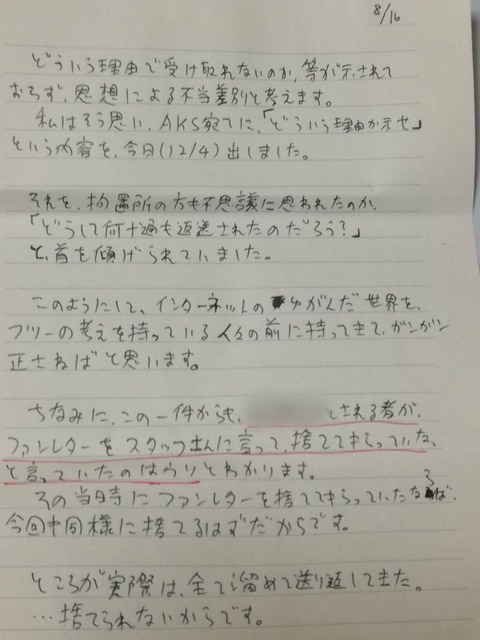 8/16
どういう理由で受け取れないのか、等が示されて
おらず、思想による不当差別と考えます。
私はそう思い、AKS宛てに、「どういう理由か示せ」
という内容を、今日(12/4)出しました。
それを、拘置所の方も不思議に思われたのか、
「どうして何十通も返送されたのだろう?」
と、首を傾げられていました。
このようにして、インターネットのゆがんだ世界を、
フツーの考えを持っている人々の前に持ってきて、ガンガン
正さねばと思います。
ちなみに、この一件からも、とされる者が、
ファンレターをスタッフさんに言って、捨ててもらっていた、
と言っていたのはウソとわかります。
その当日時にファンレターを捨ててもらっていたならば、
今回も同様に捨てるはずだからです。
ところが実際は、全て溜めて送り返してきた。
…捨てられないからです。